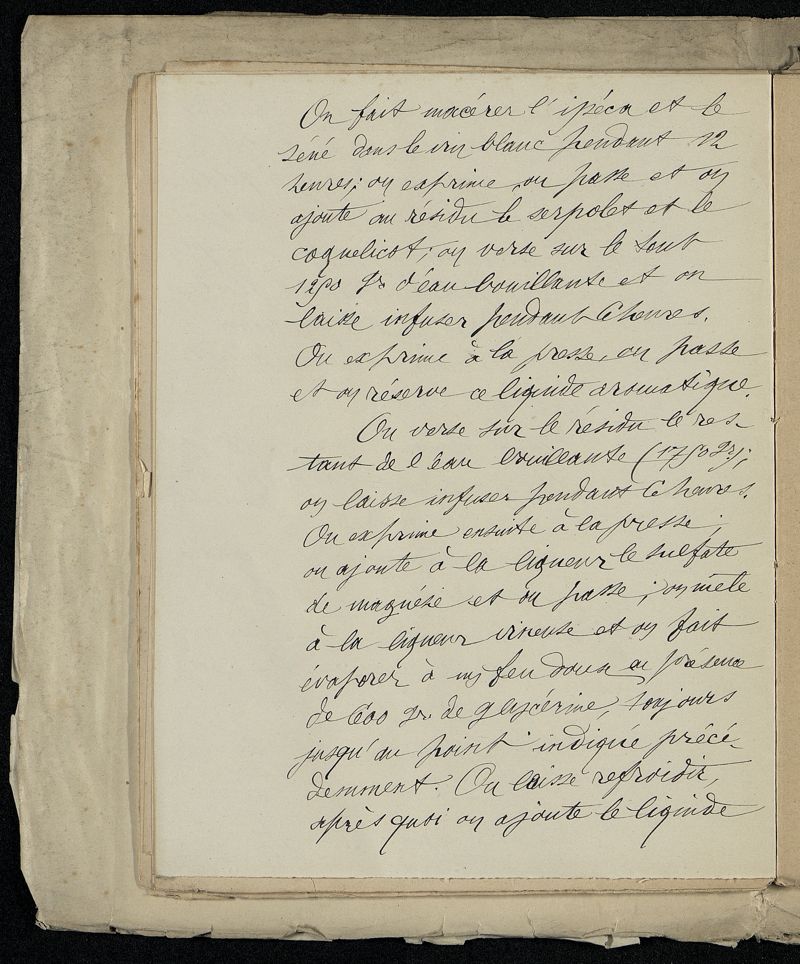 On fait macérer l'ipéca et le
séné dans le vin blanc pendant 12
heures; on exprime, on passe et on
ajoute au résidu le serpolet et le
coquelicot; on verse sur le tout
1250 gr d'eau bouillante et on
laisse infuser pendant 6 heures.
On exprime à la presse, on passe
et on réserve ce liquide aromatique.
On verse sur le résidu le res-
tant de l'eau bouillante (1750 gr);
on laisse infuser pendant 6 heures.
On exprime ensuite à la presse;
on ajoute à la liqueur le sulfate
de magnésie et on passe; on mêle
à la liqueur vineuse et on fait
évaporer à un feu doux en présence
de 600 gr. de glycérine, toujours
jusqu'au point indiqué précé-
demment. On laisse refroidir,
après quoi on ajoute le liquide